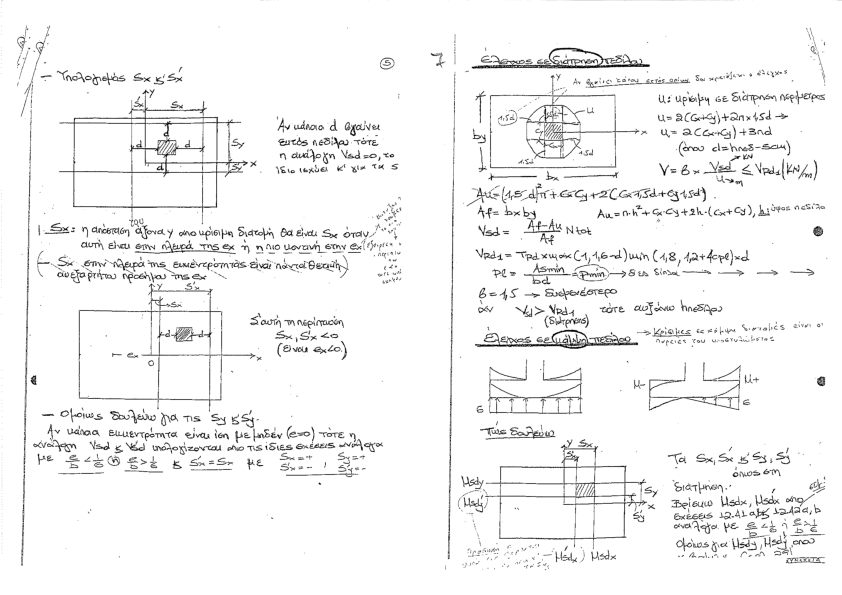 5
- Υπολογισμός Sx & S'x
y
S'x Sx
d
d d
d
Sy
S'y
x
Αν κάποιο d βγαίνει
εκτός πεδίλου τότε
η ανάλογη Vsd=0, το
ίδιο ισχύει κ' για τα S
Sx: η απόσταση άξονα y από κρίσιμη διατομή θα είναι Sx όταν
αυτή είναι στην πλευρά της ex ή η πιο κοντινή στην ex
(- Sx στην πλευρά της εκκεντρότητας είναι πάντα θετική
ανεξαρτήτου προσήμου της ex
y S'x
Sx
d d
ex
O
x
Σ'αυτή τη περίπτωση
Sx, S'x <0
(είναι ex<0)
- Ομοίως δουλεύω για τις Sy & S'y.
Αν κάποια εκκεντρότητα είναι ίση με μηδέν (e=0) τότε η
ανάλογη Vsd & V'sd υπολογίζονται από τις ίδιες σχέσεις ανάλογα
με e/b < 1/6 ή e/b > 1/6 & S'x = Sx με Sx=+ , Sy=+
S'x=- , S'y=-
7
Έλεγχος σε διάτρηση πεδίλου
Αν βγαίνει έστω εκτός δεν χρειάζεται ο έλεγχος
y
1,5d
u
by
cy
cx
x
1,5d 1,5d
bx
u: κρίσιμη σε διάτρηση περίμετρος
u = 2(cx+cy)+2π×1,5d →
u = 2(cx+cy)+3πd
(όπου d=hπεδ-5cm)
V = β × Vsd/u ≤ VRd1 (KN/m)
KN
m
Au = (1,5·d)²π + cx·cy + 2(cx·1,5d + cy·1,5d)
Af = bx·by
Au = π·h² + cx·cy + 2h·(cx+cy), h: ύψος πεδίλου
Vsd = Af-Au/Af Ntot
VRd1 = τRd × max(1, 1,6-d) min(1,8, 1,2+40ρℓ) × d
ρℓ = Asmin/bd = ρmin → → → →
β = 1,5 → δυσμενέστερο
αν Vsd > VRd1 τότε αυξάνω hπεδίλου
(διάτρησης)
→ Κρίσιμες σε κάμψη διατομές είναι οι
παρειές του υποστυλώματος
Έλεγχος σε κάμψη πεδίλου
Μ- Μ+
σ σ
Πώς δουλεύω
y Sx
S'x
Msdy
Msdy'
Sy
x
S'y
M'sdx Msdx
Τα Sx, S'x & Sy, S'y
όπως στη
διάτμηση.
Βρίσκω Msdx, M'sdx από
σχέσεις 12.41 a,b & 12.42 a,b
ανάλογα με e/b < 1/6 ή e/b > 1/6
Ομοίως για Msdy, M'sdy όπου
ΣΥΝΕΧΕΙΑ